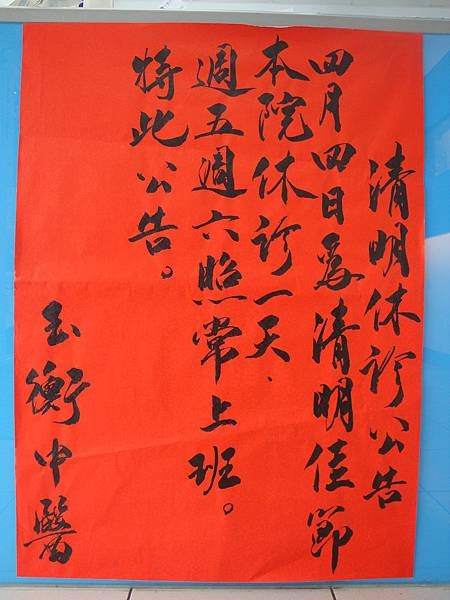 清明休診公告
四月四日為清明佳節
本院休診一天.
週五週六照常上班。
特此公告。
玉衡中醫